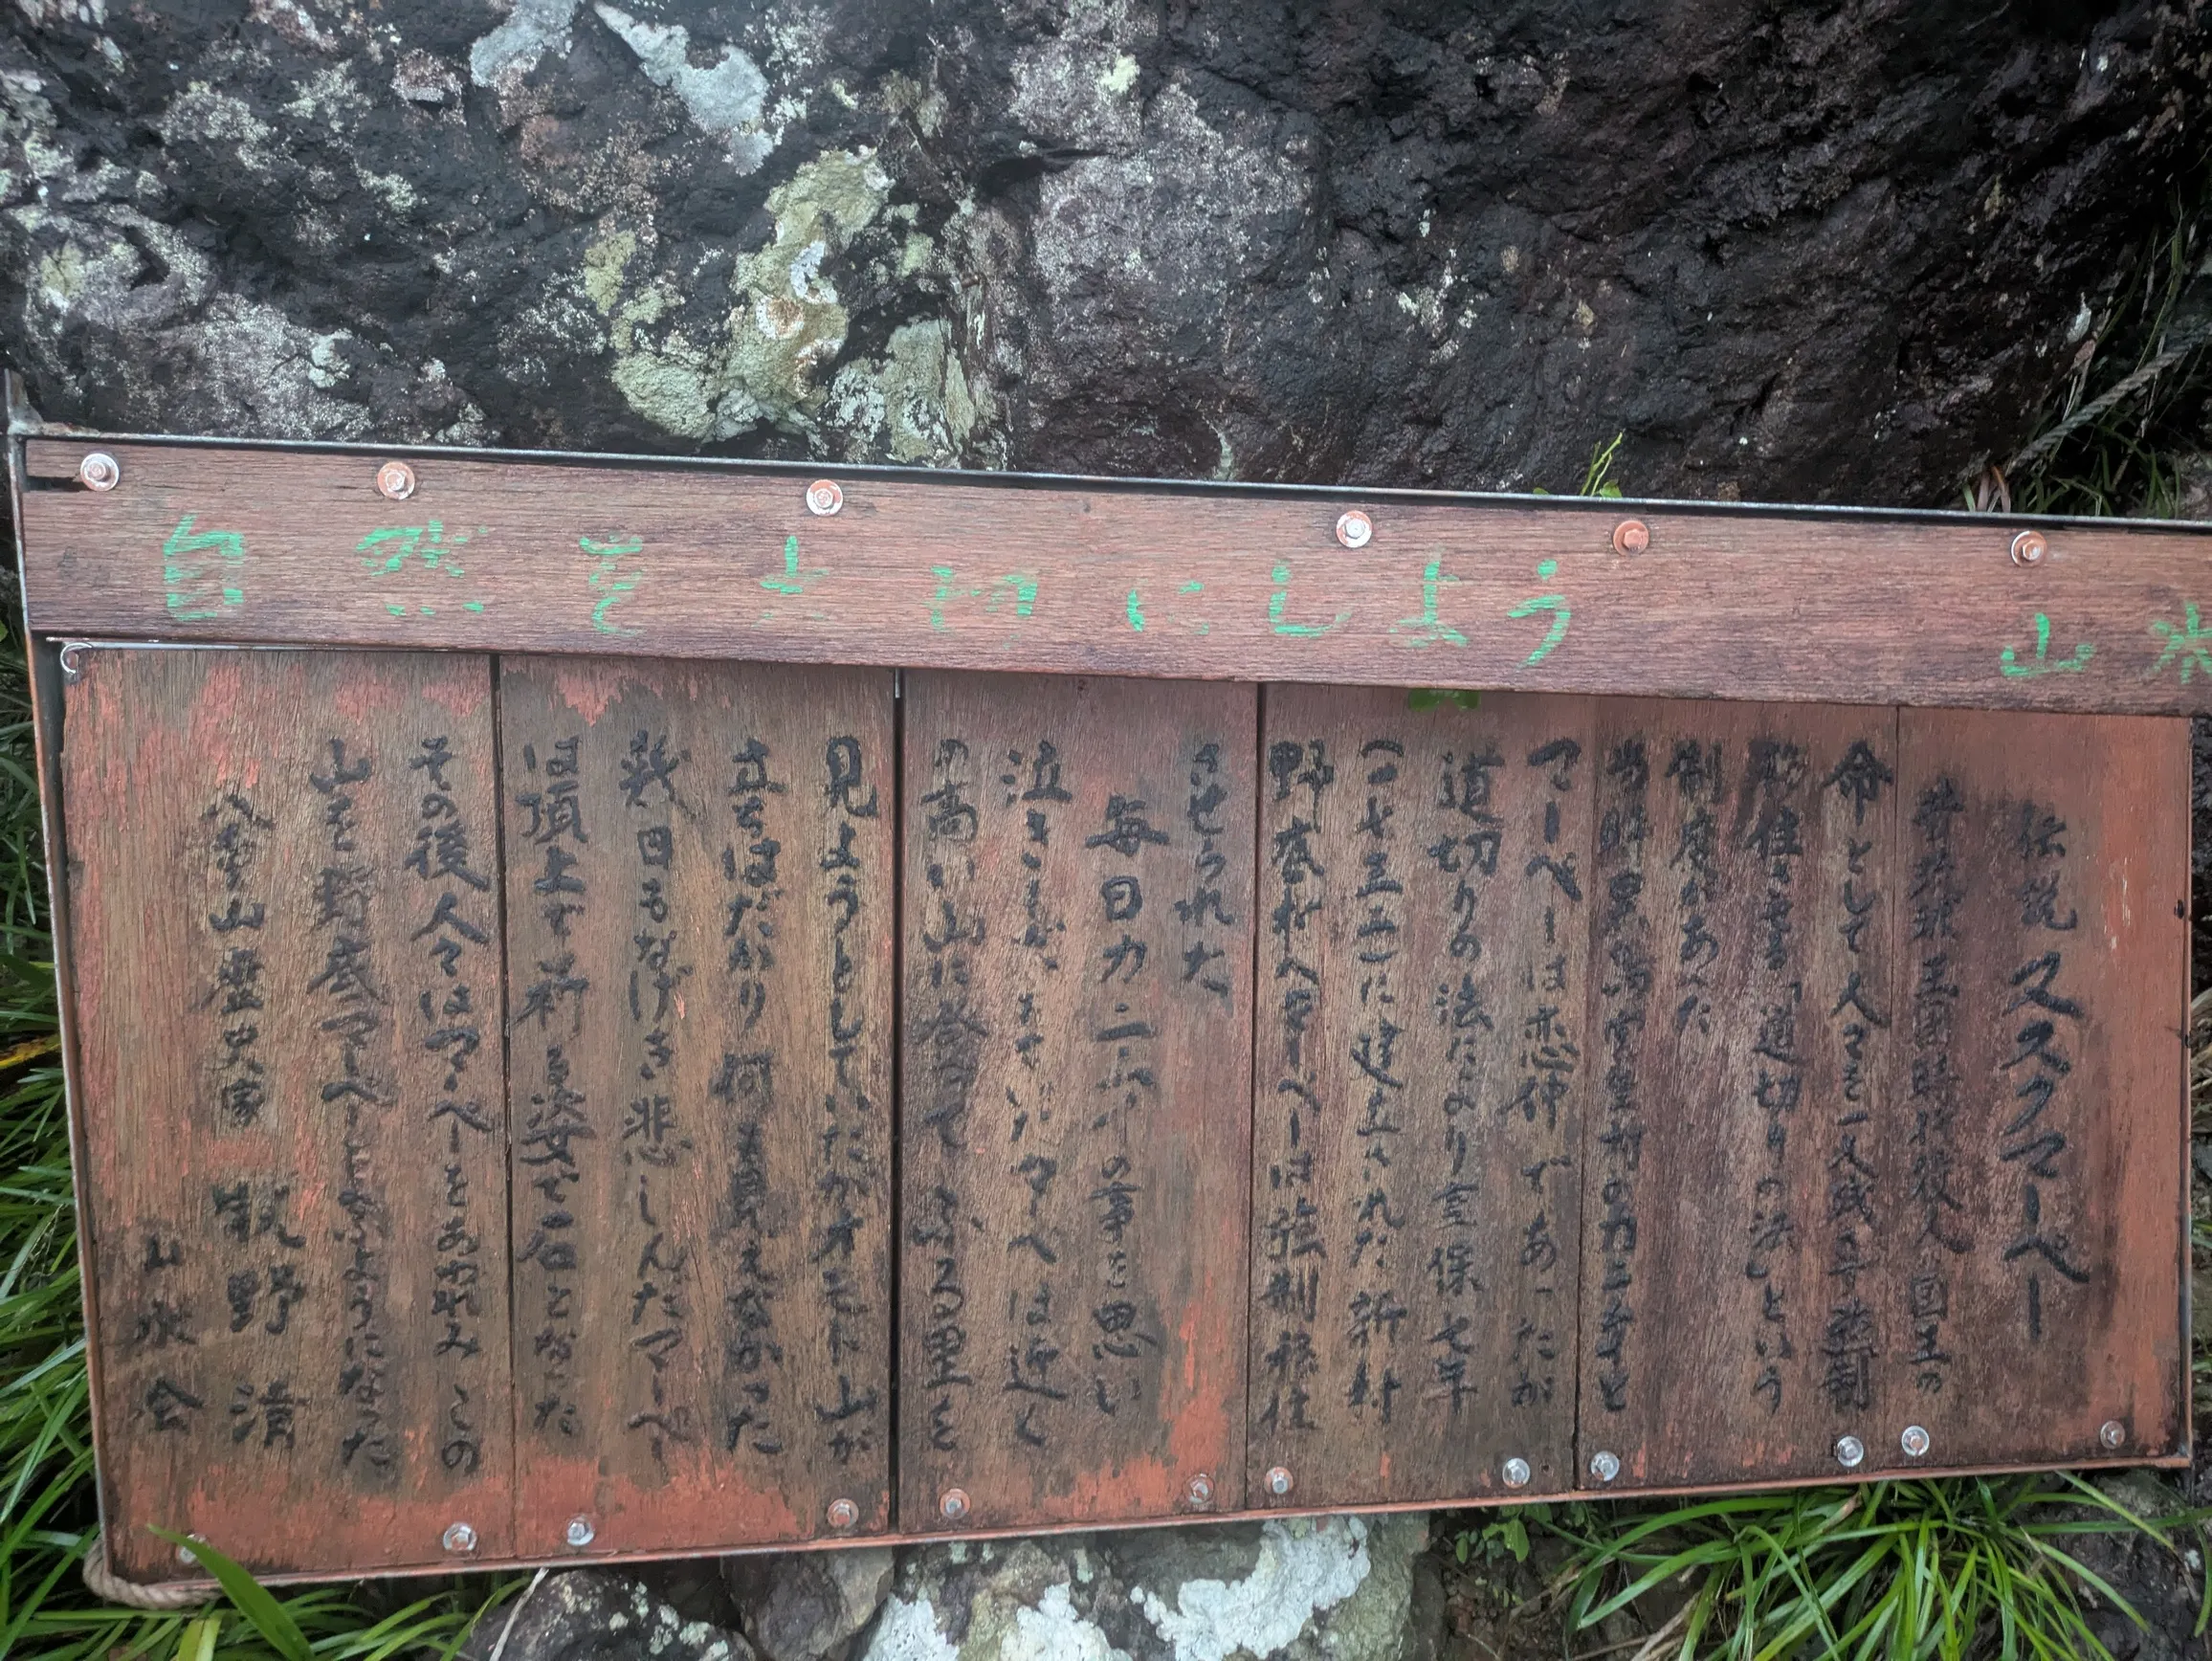 自然を大切にしよう
山
伝説 ヌスクマーペー
琉球王国時代役人 国王の
命として人々を
移住させる「道切りの法」という
制度があった
当時黒島 村のカニムイと
マーペーは恋仲であったが
道切りの法により 享保七年
に建立された新村
野底村へマーペーは強制移住
させられた
毎日カニムイの事を思い
泣き マーペーは近く
の高い山に登って ふる里を
見ようとしていたがオモト山が
立ちはだかり 何も見えなかった
幾日もなげき悲しんだマーペー
は頂上で祈る姿で石となった
その後人々はマーペーをあわれみ この
山を野底マーペーと ようになった
八重山歴史家 牧野 清
山 会